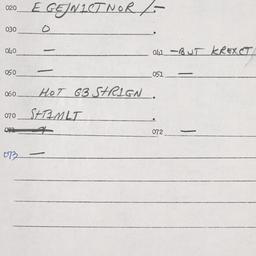 020 E GEJNICTNOR /-
030 O .
040 — 041 -BUT KREXCT/
050 — 051 —
060 HOT G3 STRIGN .
070 STIMLT .
072 —
073 —